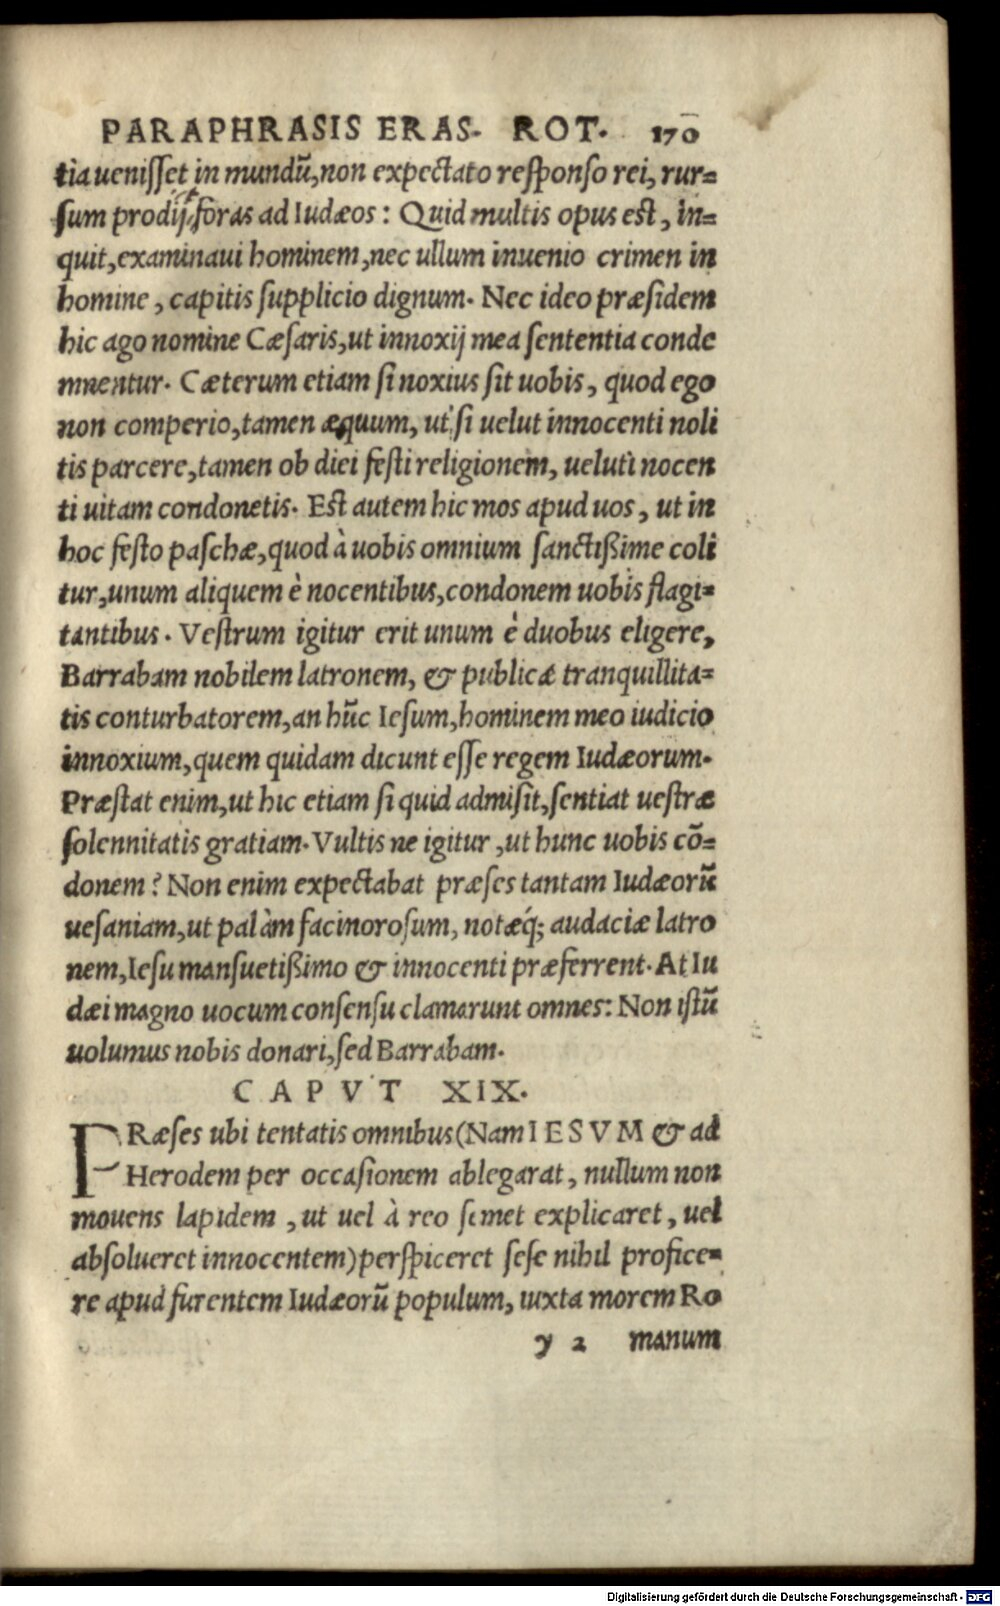 PARAPHRASIS ERAS. ROT. 170
tia uenisset in mundũ, non expectato responso rei, rur=
sum prodijt foras ad Iudæos : Quid multis opus est, in=
quit, examinaui hominem, nec ullum inuenio crimen in
homine, capitis supplicio dignum. Nec ideo præsidem
hic ago nomine Cæsaris, ut innoxij mea sententia conde
mnentur. Cæterum etiam si noxius sit uobis, quod ego
non comperio, tamen æquum, ut si uelut innocenti noli
tis parcere, tamen ob diei festi religionem, ueluti nocen
ti uitam condonetis. Est autem hic mos apud uos, ut in
hoc festo paschæ, quod à uobis omnium sanctißime coli
tur, unum aliquem è nocentibus, condonem uobis flagi=
tantibus. Vestrum igitur erit unum è duobus eligere,
Barrabam nobilem latronem, & publicæ tranquillita=
tis conturbatorem, an hũc Iesum, hominem meo iudicio
innoxium, quem quidam dicunt esse regem Iudæorum.
Præstat enim, ut hic etiam si quid admisit, sentiat uestræ
solennitatis gratiam. Vultis ne igitur, ut hunc uobis cõ=
donem? Non enim expectabat præses tantam Iudæorũ
uesaniam, ut palàm facinorosum, notæq́; audaciæ latro
nem, Iesu mansuetißimo & innocenti præferrent. At Iu
dæi magno uocum consensu clamarunt omnes: Non istũ
uolumus nobis donari, sed Barrabam.
CAPVT XIX.
PRæses ubi tentatis omnibus (Nam IESVM & ad
Herodem per occasionem ablegarat, nullum non
mouens lapidem, ut uel à reo semet explicaret, uel
absolueret innocentem) perspiceret sese nihil profice=
re apud furentem Iudæorũ populum, iuxta morem Ro
y 2 manum
Digitalisierung gefördert durch die Deutsche Forschungsgemeinschaft - DFG